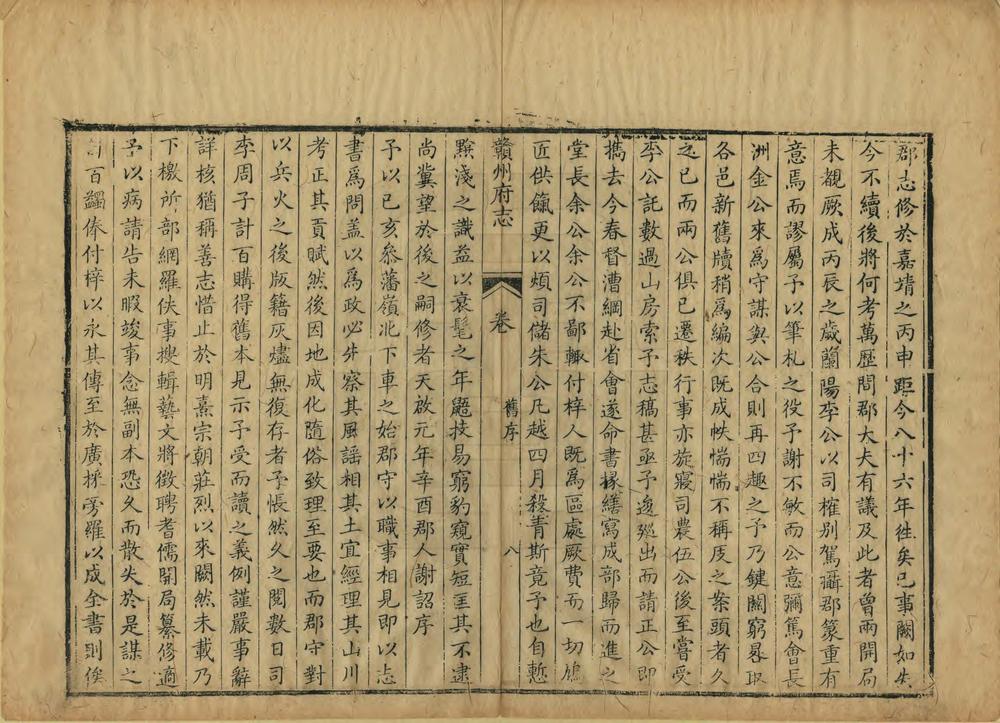 郡志修於嘉靖之丙申距今八十六年徃矣已事闕如失
今不續後將何考萬歷間郡大夫有議及此者曾兩開局
未覩厥成丙辰之歲蘭陽李公以司榷別駕攝郡篆重有
意焉而謬屬予以筆札之役予謝不敏而公意彌篤會長
洲金公來爲守謀與公合則再四趣之予乃鍵關窮晷取
各邑新舊牘稍爲編次既成帙惴惴不稱庋之案頭者久
之已而兩公俱已遷秩行事亦旋寢司農伍公後至嘗受
李公託數過山房索予志稿甚亟予逡廵出而請正公即
擕去今春督漕綱赴省會遂命書掾繕寫成部歸而進之
堂長余公余公不鄙輙付梓人既爲區處厥費而一切鳩
匠供餼更以煩司儲朱公凡越四月殺青斯竟予也自慙
贛州府志
卷
舊序
八
黭淺之識益以衰髦之年鼯技易窮豹窺實短匡其不逮
尚冀望於後之嗣修者天啟元年辛酉郡人謝詔序
予以己亥叅藩嶺北下車之始郡守以職事相見即以志
書爲問蓋以爲政必先察其風謡相其土宜經理其山川
考正其貢賦然後因地成化隨俗致理至要也而郡守對
以兵火之後版籍灰燼無復存者予悵然久之閱數日司
李周子計百購得舊本見示予受而讀之義例謹嚴事辭
詳核猶稱善志惜止於明熹宗朝莊烈以來闕然未載乃
下檄所部網羅佚事搜輯藝文將徵聘耆儒開局纂修適
予以病請告未暇竣事念無副本恐久而散失於是謀之
百蠲俸付梓以永其傳至於廣採旁羅以成全書則俟